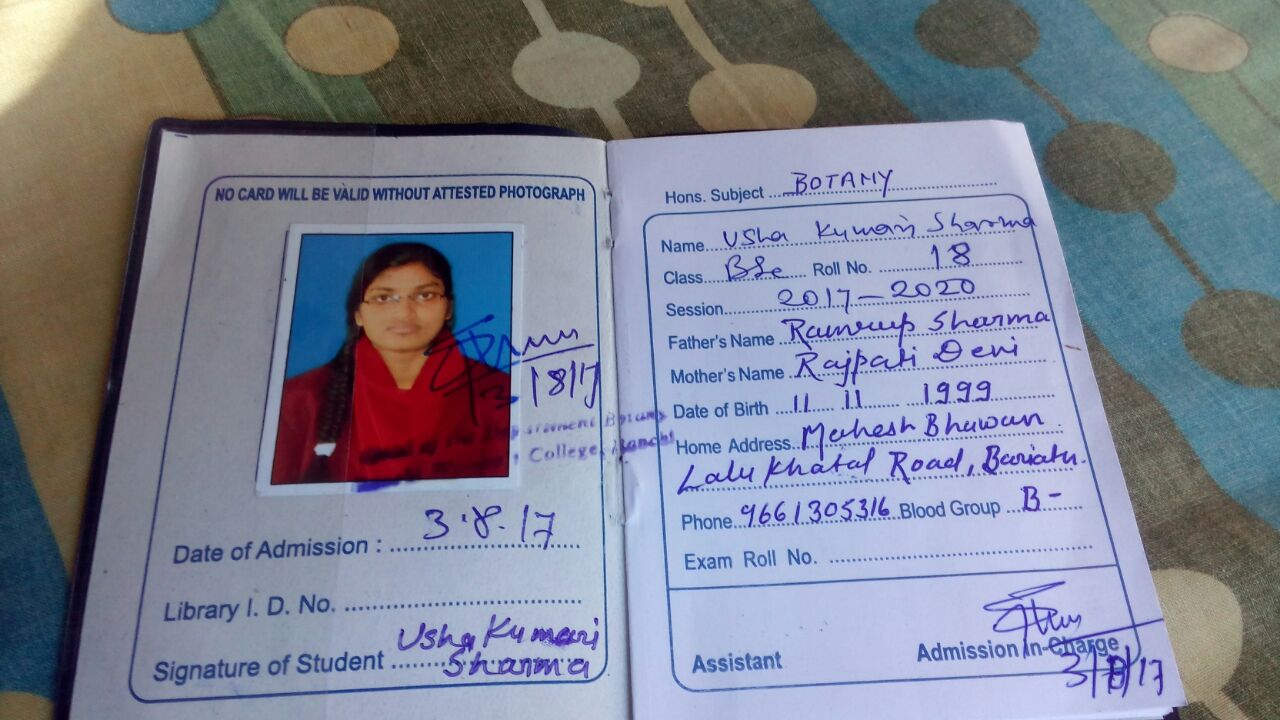 NO CARD WILL BE VALID WITHOUT ATTESTED PHOTOGRAPH
3/8/17
Department Botany
College, Ranchi
Date of Admission : 3.8.17
Library I. D. No.
Usha Kumari
Signature of Student Sharma
Hons. Subject BOTANY
Name Usha Kumari Sharma
Class BSc Roll No. 18
Session 2017-2020
Father's Name Ramrup Sharma
Mother's Name Rajpati Devi
Date of Birth 11 11 1999
Home Address Mahesh Bhawan
Lalu Khatal Road, Bariatu.
Phone 9661305316 Blood Group B-
Exam Roll No.
Assistant
Admission In-Charge
3/8/17